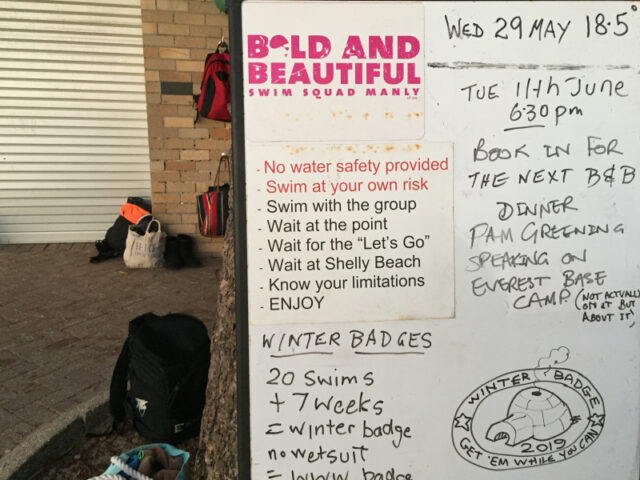 BOLD AND
BEAUTIFUL
SWIM SQUAD MANLY
- No water safety provided
- Swim at your own risk
- Swim with the group
- Wait at the point
- Wait for the "Let's Go"
- Wait at Shelly Beach
- Know your limitations
- ENJOY
WINTER BADGES
20 Swims
+ 7 weeks
= winter badge
no wetsuit
= WWW badge
WED 29 MAY 18.5°
TUE 11th June
6.30 pm
BOOK IN FOR
THE NEXT B&B
DINNER
PAM GREENING
SPEAKING ON
EVEREST BASE
CAMP (NOT ACTUALLY
ON IT BUT
ABOUT IT)
WINTER BADGE
2019
GET 'EM WHILE YOU CAN